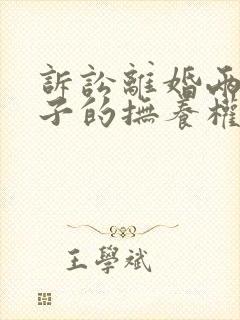 訴訟離婚兩
子的撫養權
王學斌